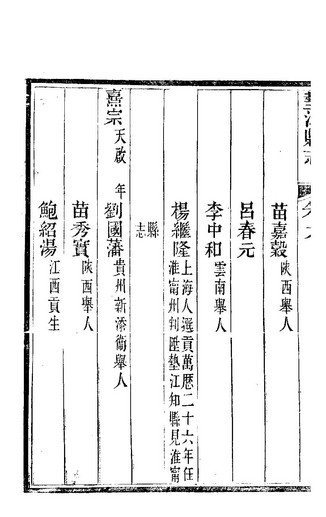 墊江縣志
苗嘉穀陝西舉人
呂春元
李中和雲南舉人
楊繼隆上海人選貢萬厯二十六年任
淮甯州判陞墊江知縣見淮甯
縣
志
熹宗天啟　年劉國藩貴州新添衞舉人
苗秀實陝西舉人
鮑紹湯江西貢生